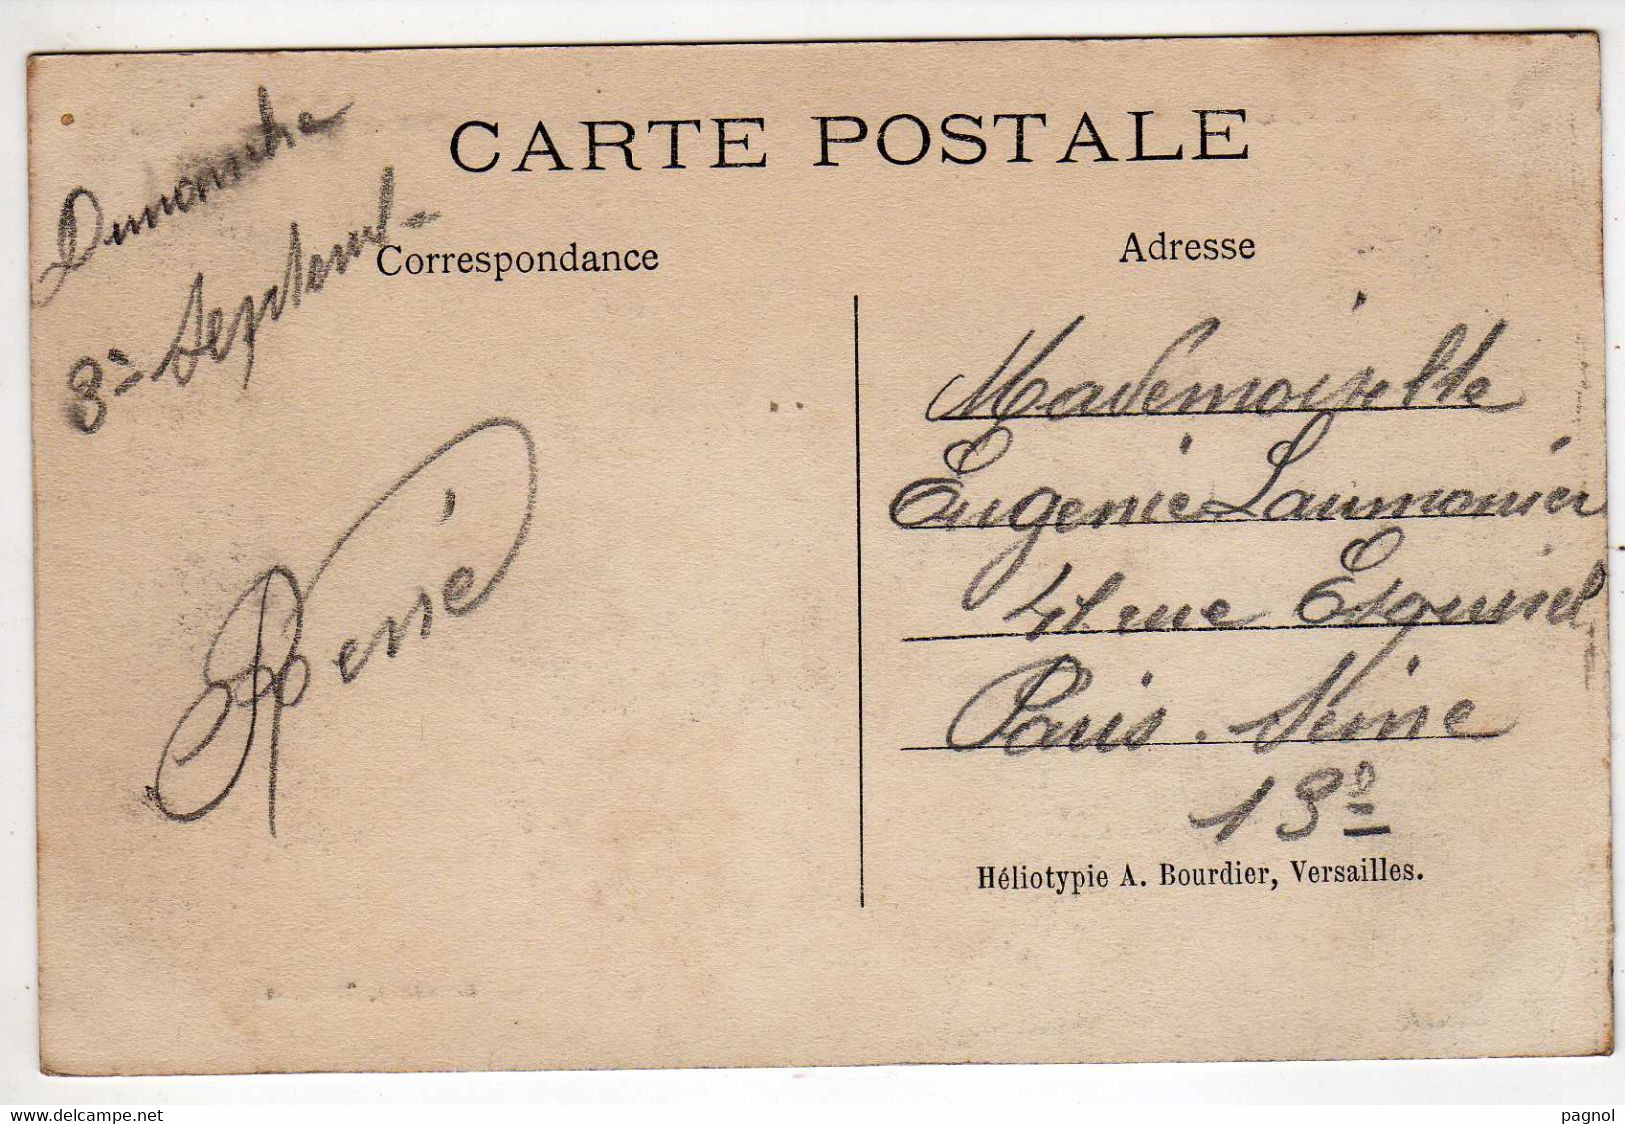 CARTE POSTALE
Correspondance
Adresse
Dimanche
8 Septemb
René
Mademoiselle
Eugenie Laumonier
41 rue Esquirol
Paris. Seine
13e
Héliotypie A. Bourdier, Versailles.
www.delcampe.net
pagnol